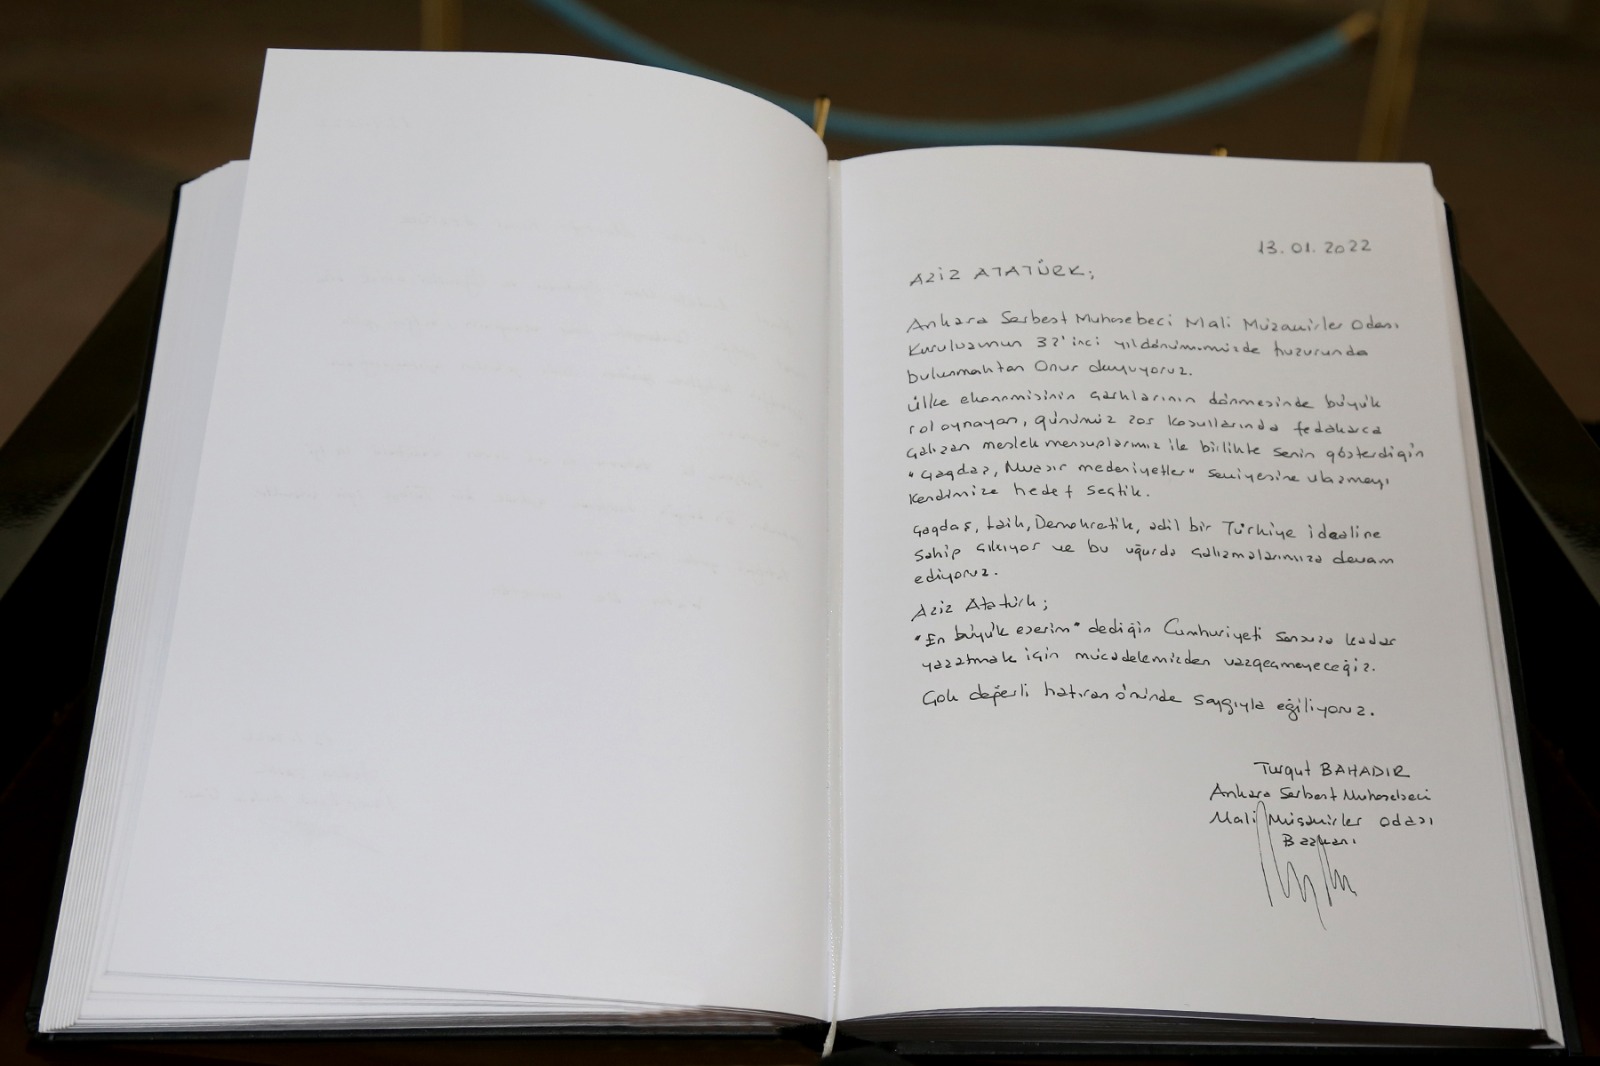 13.01.2022
AZİZ ATATÜRK;
Ankara Serbest Muhasebeci Mali Müşavirler Odası
Kuruluşunun 32'inci yıldönümümüzde huzurunda
bulunmaktan Onur duyuyoruz.
Ülke ekonomisinin çarklarının dönmesinde büyük
rol oynayan, günümüz zor koşullarında fedakarca
çalışan meslek mensuplarımız ile birlikte senin gösterdiğin
"Çağdaş, Muasır medeniyetler" seviyesine ulaşmayı
kendimize hedef seçtik.
Çağdaş, Laik, Demokratik, adil bir Türkiye idealine
sahip çıkıyor ve bu uğurda çalışmalarımıza devam
ediyoruz.
Aziz Atatürk;
"En büyük eserim" dediğin Cumhuriyeti sonsuza kadar
yaşatmak için mücadelemizden vazgeçmeyeceğiz.
Çok değerli hatıran önünde saygıyla eğiliyoruz.
Turgut BAHADIR
Ankara Serbest Muhasebeci
Mali Müşavirler Odası
Başkanı